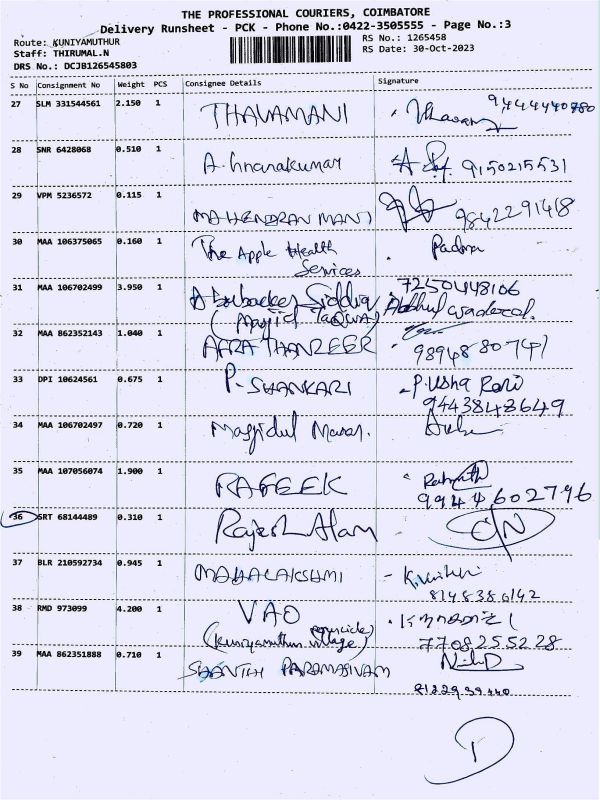 THE PROFESSIONAL COURIERS, COIMBATORE
Delivery Runsheet - PCK - Phone No.:0422-3505555 - Page No.:3
Route: KUNIYAMUTHUR
RS No.: 1265458
Staff: THIRUMAL.N
RS Date: 30-Oct-2023
DRS No.: DCJB126545803
S No Consignment No Weight PCS Consignee Details Signature
27 SLM 331544561 2.150 1 THAVAMANI
28 SNR 6428068 0.510 1 A. Gnanakumar 9150215531
29 VPM 5236572 0.115 1 MAHENDRAN MANI 9842291418
30 MAA 106375065 0.160 1 The Apple Health Services Padma
31 MAA 106702499 3.950 1 Abubacker Siddiq 7250448106
32 MAA 862352143 1.040 1 AFRA THANZEER 9894880741
33 DPI 10624561 0.675 1 P. SHANKARI P. Usha Rani
9443843649
34 MAA 106702497 0.720 1 Masjidul
35 MAA 107056074 1.900 1 RAFEEK
9944602796
36 SRT 68144489 0.310 1 Rajesh Alam
37 BLR 210592734 0.945 1 MAHALAKSHMI
8148386142
38 RMD 973099 4.200 1 VAO
(Kuniyamuthur village) 7708255228
39 MAA 862351888 0.710 1 SHANTHI PARAMASIVAM